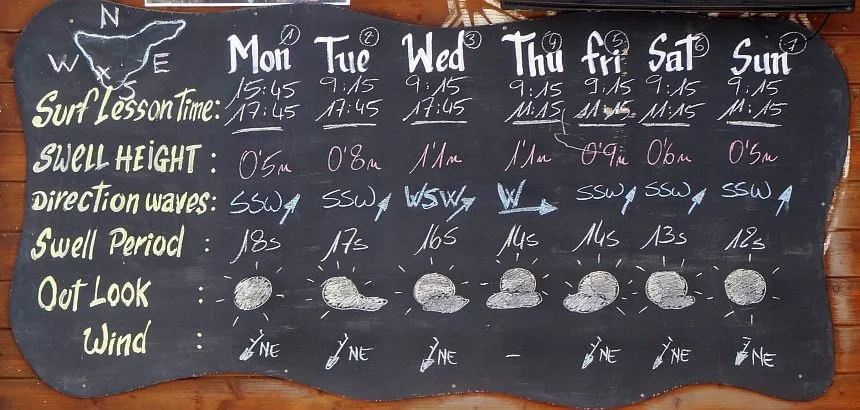 N
W E
S
Mon 1 Tue 2 Wed 3 Thu 4 fri 5 Sat 6 Sun 7
15:45 9:15 9:15 9:15 9:15 9:15 9:15
Surf Lesson Time: 17:45 17:45 17:45 11:15 11:15 11:15 11:15
SWELL HEIGHT : 0'5m 0'8m 1'1m 1'1m 0'9m 0'6m 0'5m
Direction waves: SSW SSW WSW W SSW SSW SSW
Swell Period : 18s 17s 16s 14s 14s 13s 12s
Out Look :
Wind : NE NE NE – NE NE NE